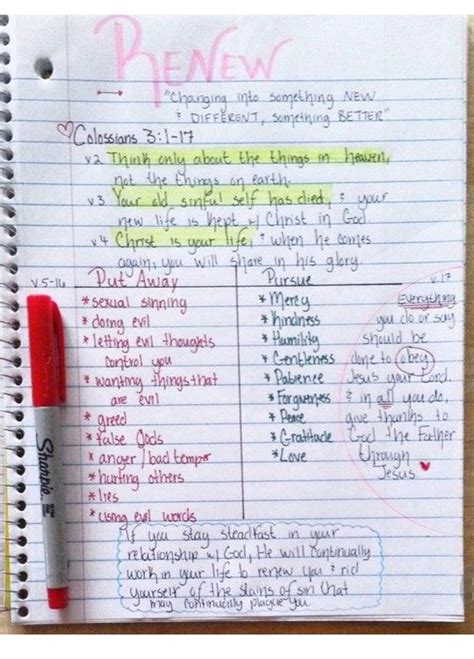 RENEW
"Changing into something NEW
& DIFFERENT, something BETTER"
Colossians 3:1-17
v2 Think only about the things in heaven,
not the things on earth.
v3 Your old, sinful self has died, & your
new life is kept w/ Christ in God.
v4 Christ is your life, & when he comes
again, you will share in his glory.
v.5-16
Put Away
* sexual sinning
* doing evil
* letting evil thoughts
control you
* wanting things that
are evil
* greed
* false Gods
* anger/bad temper
* hurting others
* lies
* using evil words
Pursue
* Mercy
* Kindness
* Humility
* Gentleness
* Patience
* Forgiveness
* Peace
* Gratitude
* Love
v.17
Everything
you do or say
should be
done to obey
Jesus your Lord.
& in all you do,
give thanks to
God the Father
through
Jesus.
If you stay steadfast in your
relationship w/ God, He will continually
work in your life to renew you & rid
yourself of the stains of sin that
may continually plague you.
Sharpie